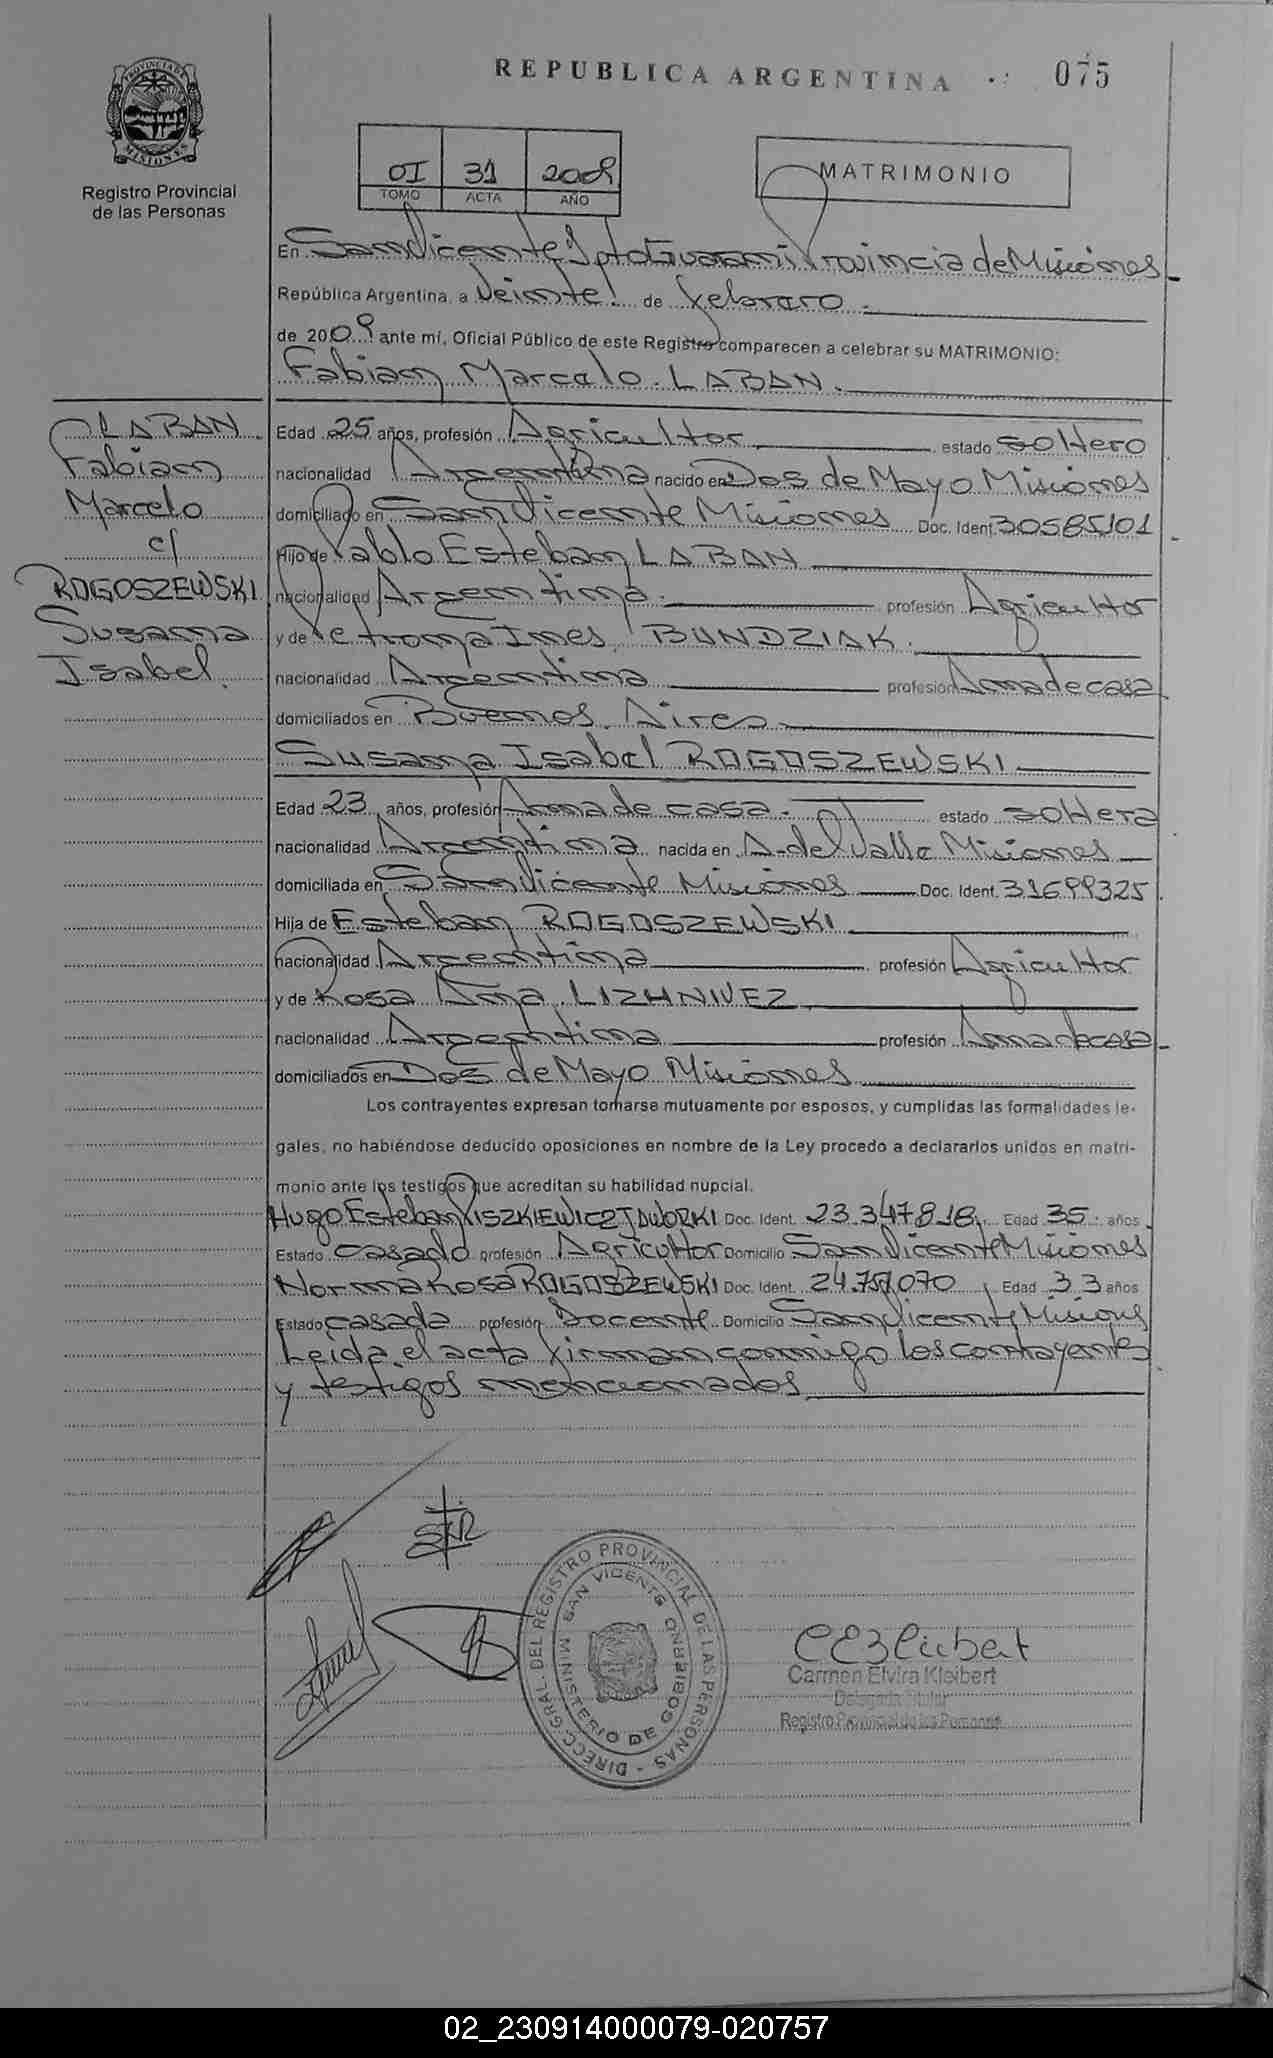 REPUBLICA ARGENTINA
075
PROVINCIA DE
MISIONES
Registro Provincial
de las Personas
01 31 2009
TOMO ACTA AÑO
MATRIMONIO
En San Vicente Dpto Guaraní Provincia de Misiones
República Argentina, a Veinte de Febrero
de 2009 ante mí, Oficial Público de este Registro comparecen a celebrar su MATRIMONIO:
Fabian Marcelo LABAN.
LABAN
Fabian
Marcelo
c/
ROGOSZEWSKI
Susana
Isabel.
Edad 25 años, profesión Agricultor estado soltero
nacionalidad Argentina nacido en Dos de Mayo Misiones
domiciliado en San Vicente Misiones Doc. Ident. 30585101
Hijo de Pablo Esteban LABAN
nacionalidad Argentina profesión Agricultor
y de Petrona Ines BUNDZIAK
nacionalidad Argentina profesión Ama de casa
domiciliados en Buenos Aires
Susana Isabel ROGOSZEWSKI
Edad 23 años, profesión Ama de casa estado soltera
nacionalidad Argentina nacida en A. del Valle Misiones
domiciliada en San Vicente Misiones Doc. Ident. 31699325
Hija de Esteban ROGOSZEWSKI
nacionalidad Argentina profesión Agricultor
y de Rosa Ana LIZHNIVEZ
nacionalidad Argentina profesión Ama de casa
domiciliados en Dos de Mayo Misiones
Los contrayentes expresan tomarse mutuamente por esposos, y cumplidas las formalidades le-
gales, no habiéndose deducido oposiciones en nombre de la Ley procedo a declararlos unidos en matri-
monio ante los testigos que acreditan su habilidad nupcial.
Hugo Esteban PISZKIEWICZ JAWORKI Doc. Ident. 23.347.818 Edad 35 años
Estado casado profesión Agricultor Domicilio San Vicente Misiones
Norma Rosa ROGOSZEWSKI Doc. Ident. 24.757.070 Edad 33 años
Estado casada profesión Docente Domicilio San Vicente Misiones
Leida el acta firman conmigo los contrayentes
y testigos mencionados
DIRECC. GRAL. DEL REGISTRO PROVINCIAL DE LAS PERSONAS
MINISTERIO DE GOBIERNO
SAN VICENTE
Carmen Elvira Kleibert
Delegada Titular
Registro Provincial de las Personas
02_230914000079-020757